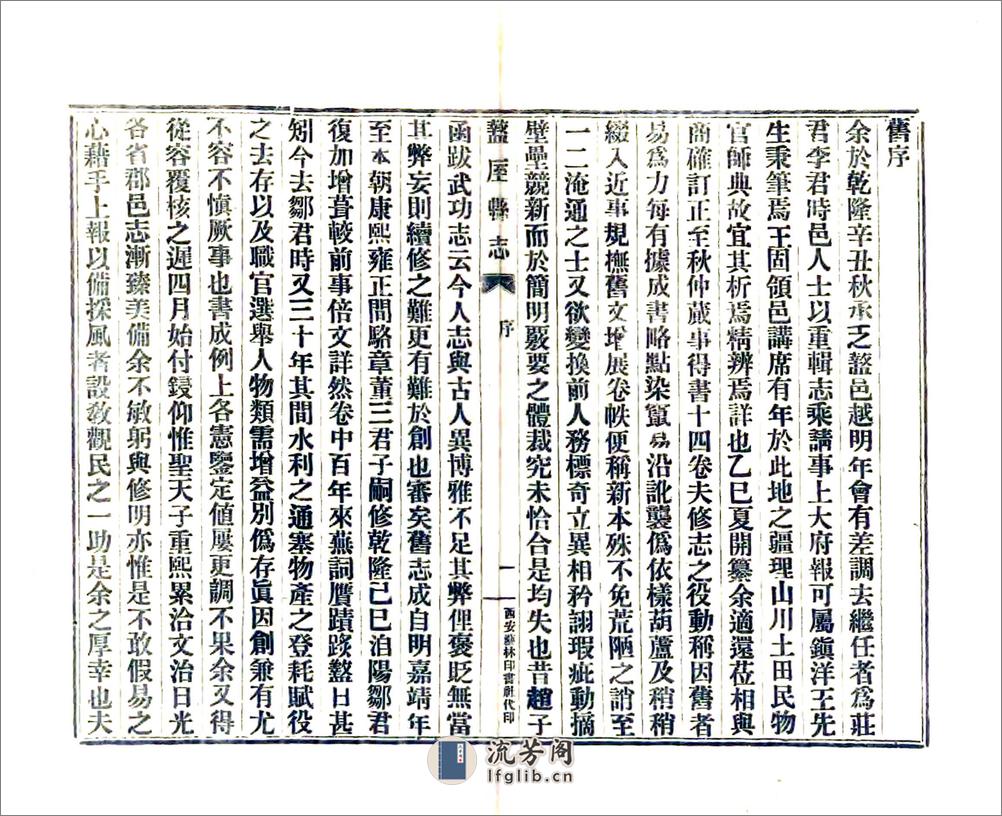 舊序
余於乾隆辛丑秋承乏盩邑越明年會有差調去繼任者爲莊
君李君時邑人士以重輯志乘請事上大府報可屬鎭洋王先
生秉筆焉王固領邑講席有年於此地之疆理山川土田民物
官師典故宜其析焉精辨焉詳也乙巳夏開纂余適還莅相與
商確訂正至秋仲蕆事得書十四卷夫修志之役動稱因舊者
易爲力每有據成書略點染竄易沿訛襲僞依樣葫蘆及稍稍
綴入近事規橅舊文增展卷帙便稱新本殊不免荒陋之誚至
一二淹通之士又欲變換前人務標奇立異相矜詡瑕疵動摘
壁壘競新而於簡明嚴要之體裁究未恰合是均失也昔趙子
盩厔縣志
序
一
西安藝林印書社代印
函跋武功志云今人志與古人異博雅不足其弊俚褒貶無當
其弊妄則續修之難更有難於創也審矣舊志成自明嘉靖年
至本朝康熙雍正間駱章董三君子嗣修乾隆己巳洎陽鄒君
復加增葺較前事倍文詳然卷中百年來燕詞贋蹟踐盭日甚
矧今去鄒君時又三十年其間水利之通塞物產之登耗賦役
之去存以及職官選舉人物類需增益別僞存眞因創兼有尤
不容不愼厥事也書成例上各憲鑒定値屢更調不果余又得
從容覆核之遲四月始付鋟仰惟聖天子重熙累洽文治日光
各省郡邑志漸臻美備余不敏躬與修明亦惟是不敢假易之
心藉手上報以備採風者設敎觀民之一助是余之厚幸也夫
流芳阁
lfglib.cn